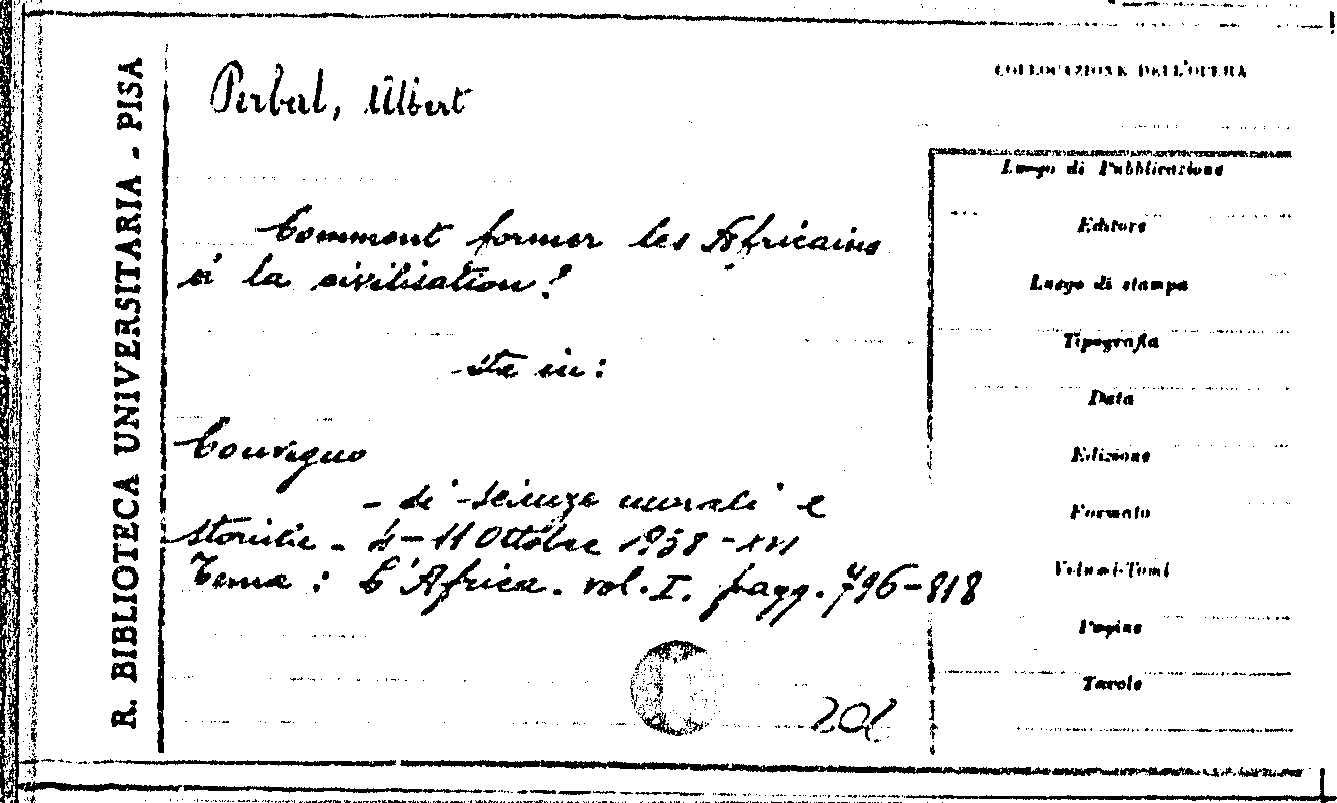 R. BIBLIOTECA UNIVERSITARIA - PISA
Perbal, Albert
Comment former les Africains
à la civilisation?
sta in:
Convegno
- di scienze morali e
storiche - 4-11 Ottobre 1938-XVI
Tema: L'Africa. vol. I. pagg. 796-818
COLLOCAZIONE DELL'OPERA
Luogo di Pubblicazione
Editore
Luogo di stampa
Tipografia
Data
Edizione
Formato
Volumi-Tomi
Pagine
Tavole